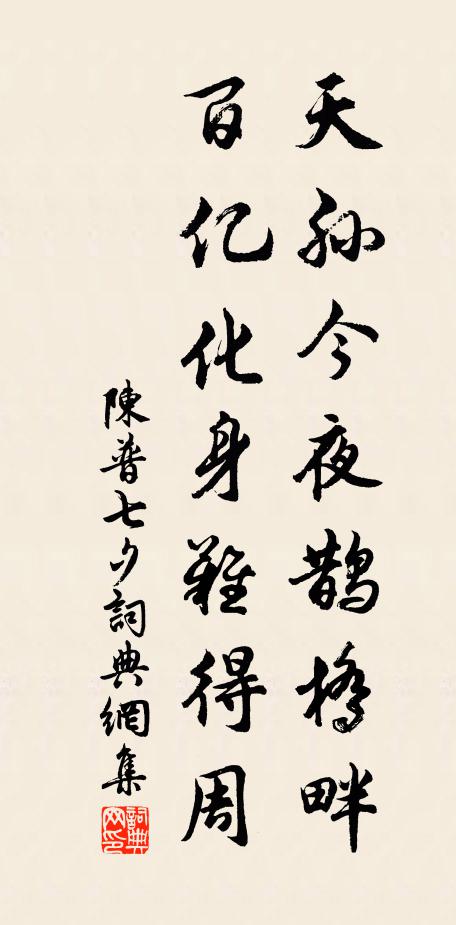 天孫今夜鵲橋畔
百亿化身難得周
陳普七夕詞典網集
詞典网印